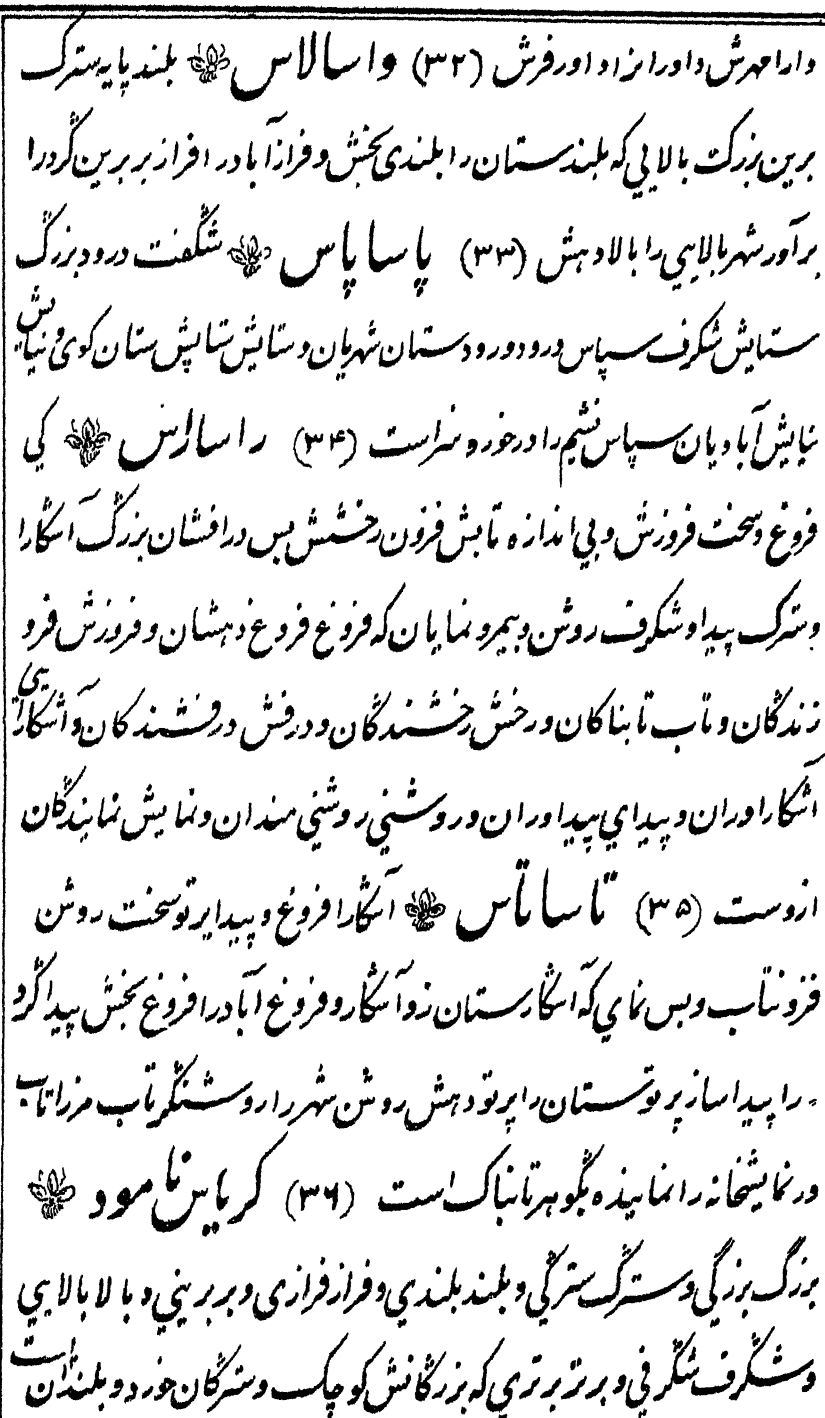 دارامهرش داورانزاد اورفرش (۳۲) واسالاس بلند پایه سترک
برین بزرک بالایي که بلندستان را بلندی بخش و فرازآباد را فراز بر برین گردرا
برآور شهر بالایي را بالا دهش (۳۳) پاساپاس شگفت درود بزرگ
ستایش شکرف سپاس درود ورودستان شهریان و ستایش ستایش ستان کوی و نیایش
نیایش آبادیان سپاس نشیم را درخور و سزاست (۳۴) راساراس کي
فروغ و سخت فروزش و بي اندازه تابش فزون رخشش بس درافشان بزرگ آشکارا
و سترک پیدا و شکرف روشن و بیمر و نمایان که فروغ فروغ دهشان و فروزش فرو
زندگان و تاب تابناکان و رخش رخشندگان و درفش درفشندکان و آشکارایي
آشکاراوران و پیداي پیداوران و روشني روشني مندان و نمایش نمایندگان
ازوست (۳۵) تاساتاس آشکارا فروغ و پیدا پرتو سخت روشن
فزونتاب و بس نماي که آشکارستان زو آشکار و فروغ آباد را فروغ بخش پیدا گرد
را پیدا ساز پرتوستان را پرتو دهش روشن شهر را روشنگر تاب مرز را تاب
ور نمایشخانه را نماینده بگوهر تابناک است (۳۶) کرپاس نامود
بزرگ بزرگي و سترگ سترگي و بلند بلندي و فراز فرازی و بر بریني و بالا بالایي
و شگرف شگرفي و برتر برتري که بزرگانش کوچک و سترگان خورد و بلندان است